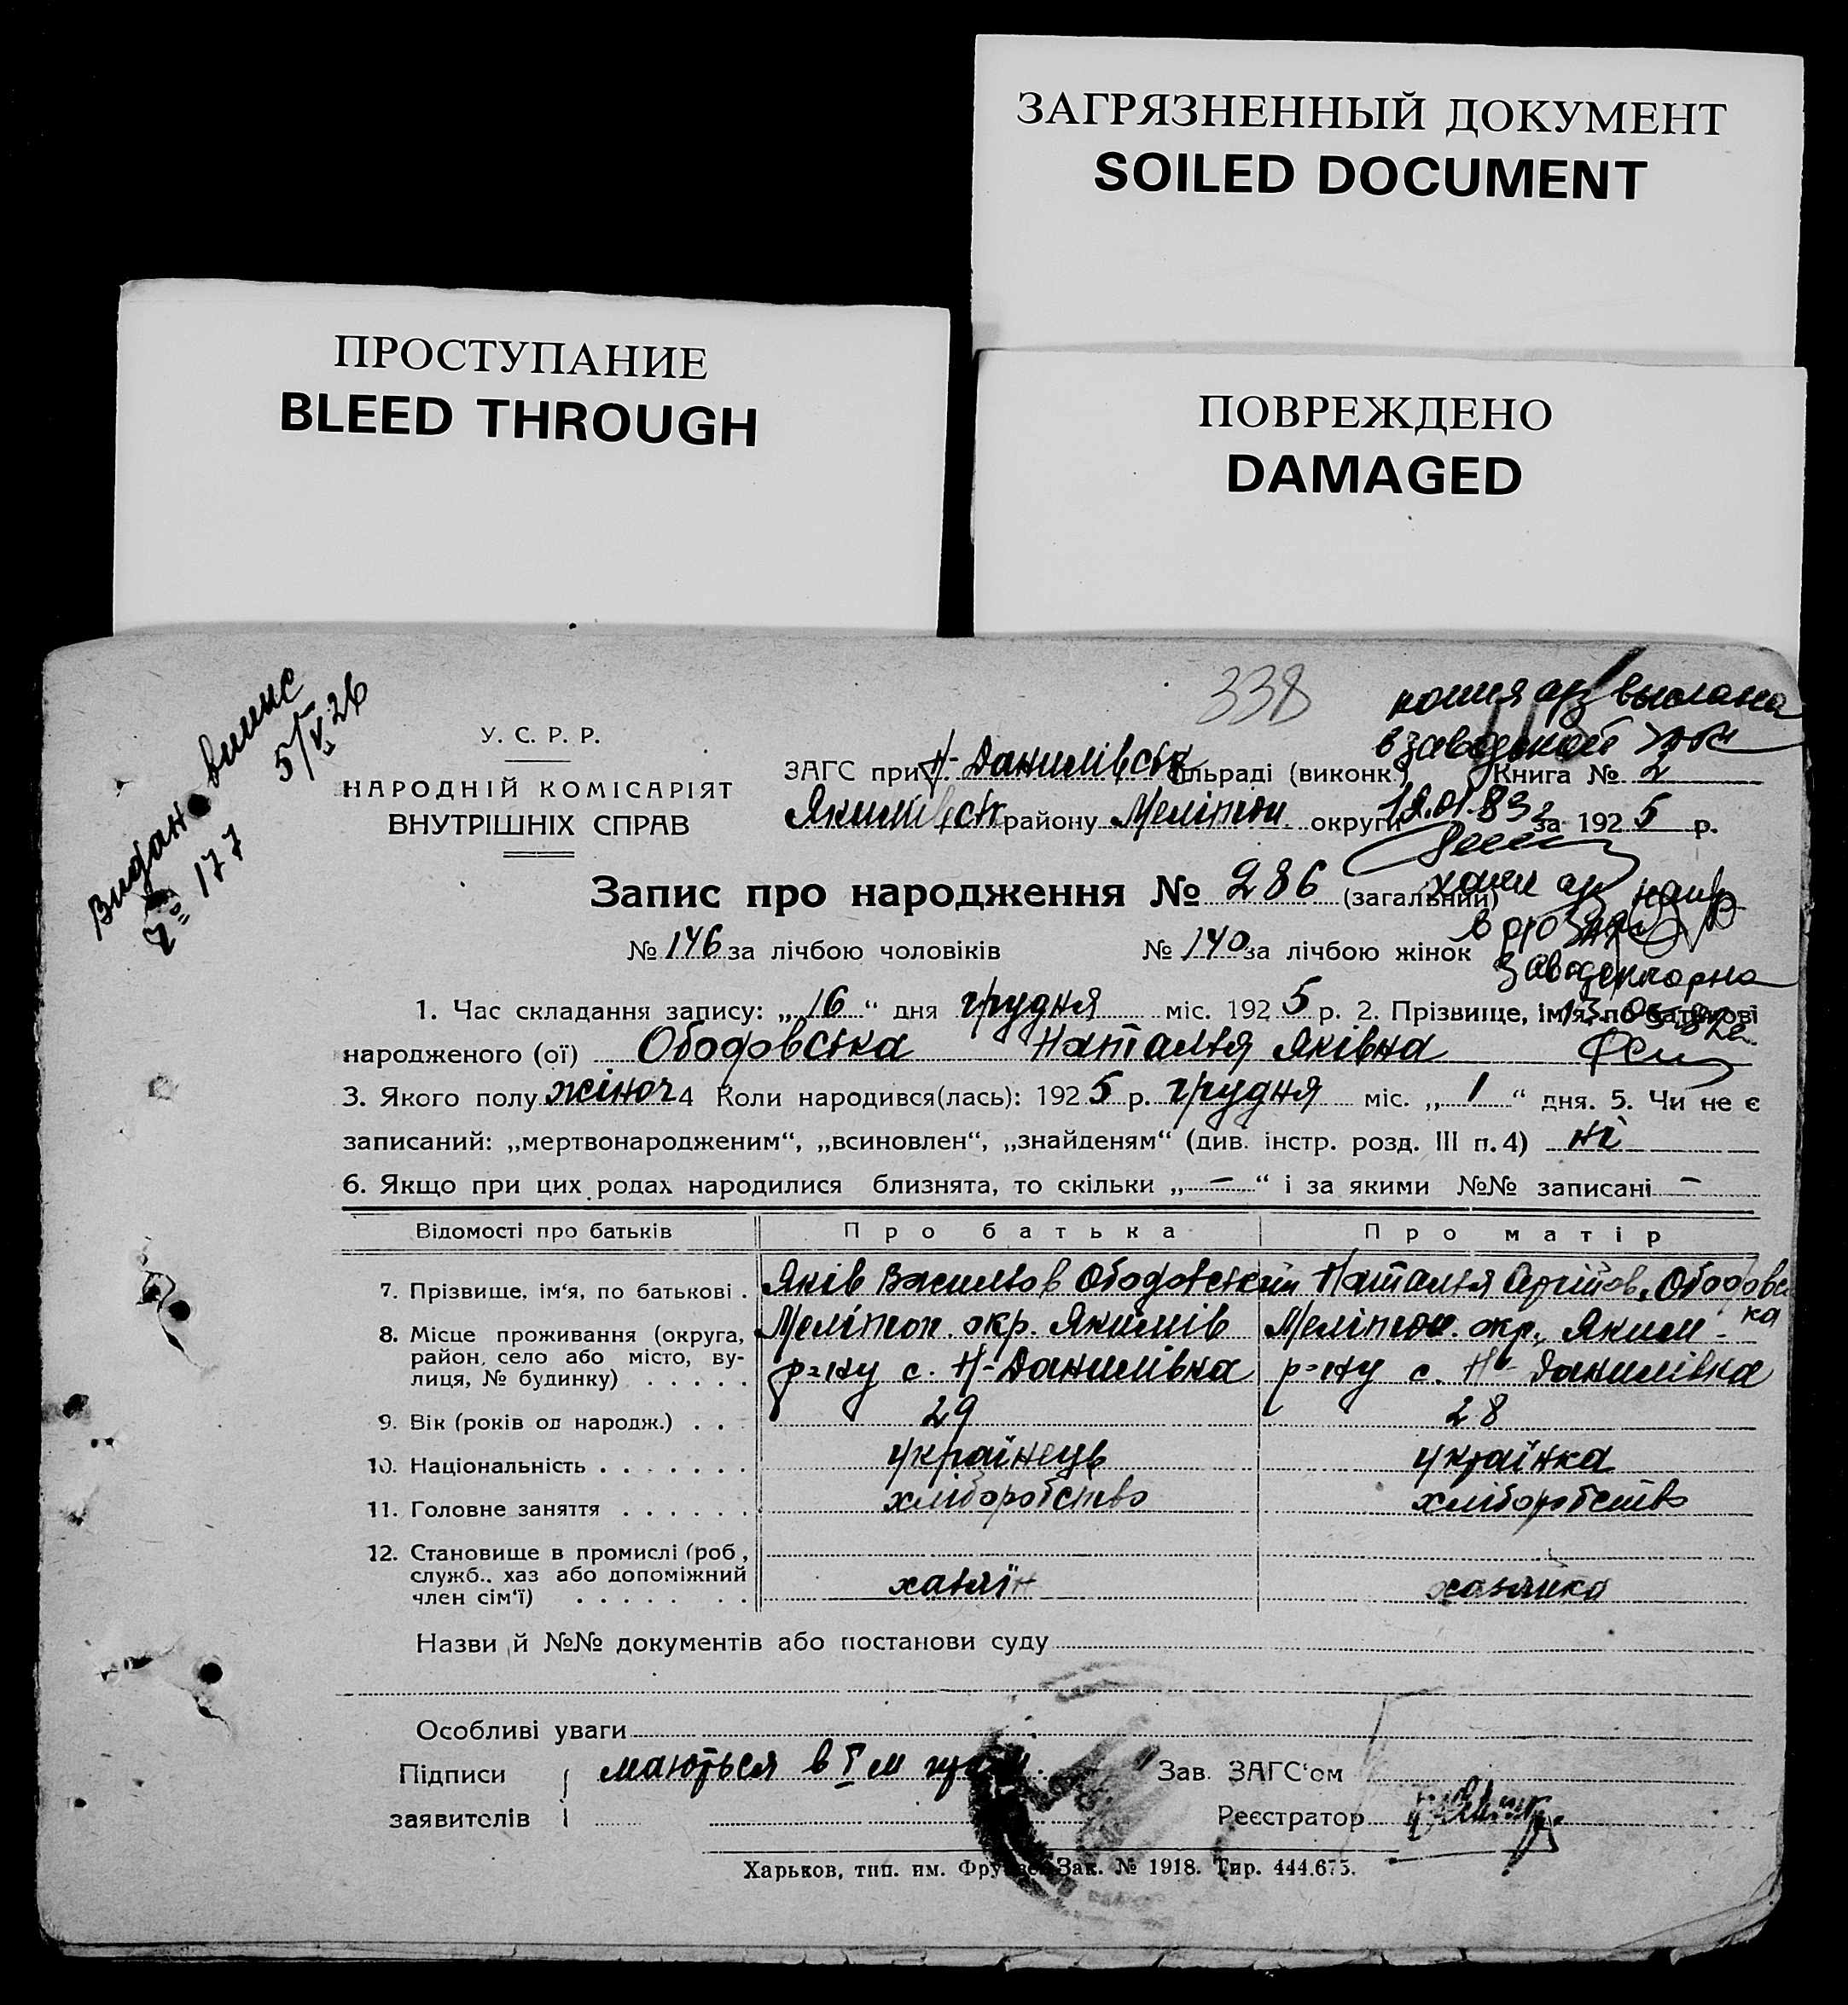 ЗАГРЯЗНЕННЫЙ ДОКУМЕНТ
SOILED DOCUMENT
ПРОСТУПАНИЕ
BLEED THROUGH
ПОВРЕЖДЕНО
DAMAGED
338
Видано випис
5/V 26
№ 177
выслана
У. С. Р. Р.
НАРОДНІЙ КОМІСАРІЯТ
ВНУТРІШНІХ СПРАВ
ЗАГС при Н-Данилівськ сільраді (виконк.) Книга № 2
Якимівськ району Мелітоп. округи за 1925 р.
19.01.83
Запис про народження № 286 (загальний)
№ 146 за лічбою чоловіків № 140 за лічбою жінок
1. Час складання запису: „16“ дня грудня міс. 1925 р. 2. Прізвище, ім'я, по батькові
народженого (ої) Ободовська Наталья Яківна
3. Якого полу жіноч 4 Коли народився(лась): 1925 р. грудня міс. „1“ дня. 5. Чи не є
записаний: „мертвонародженим“, „всиновлен“, „знайденям“ (див. інстр. розд. III п. 4) ні
6. Якщо при цих родах народилися близнята, то скільки „—“ і за якими №№ записані —
Відомості про батьків Про батька Про матір
7. Прізвище, ім'я, по батькові . Яків Васильов Ободовський Наталья Сергійов. Ободовська
8. Місце проживання (округа, район, село або місто, вулиця, № будинку) . . . . .
Мелітоп. окр. Якимів Мелітоп. окр. Яким-
р=ну с. Н-Данилівка р=ну с. Н-Данилівка
9. Вік (років од народж.) . . 29 28
10. Національність . . . . . . . українець українка
11. Головне заняття . . . . . . хліборобство хліборобство
12. Становище в промислі (роб., служб., хаз або допоміжний член сім'ї) . . . . . . .
хазяїн хазяйка
Назви й №№ документів або постанови суду
Особливі уваги
Підписи маються в I м Зав. ЗАГС'ом
заявителів Реєстратор
Харьков, тип. им. Фрунзе. Зак. № 1918. Тир. 444.675.